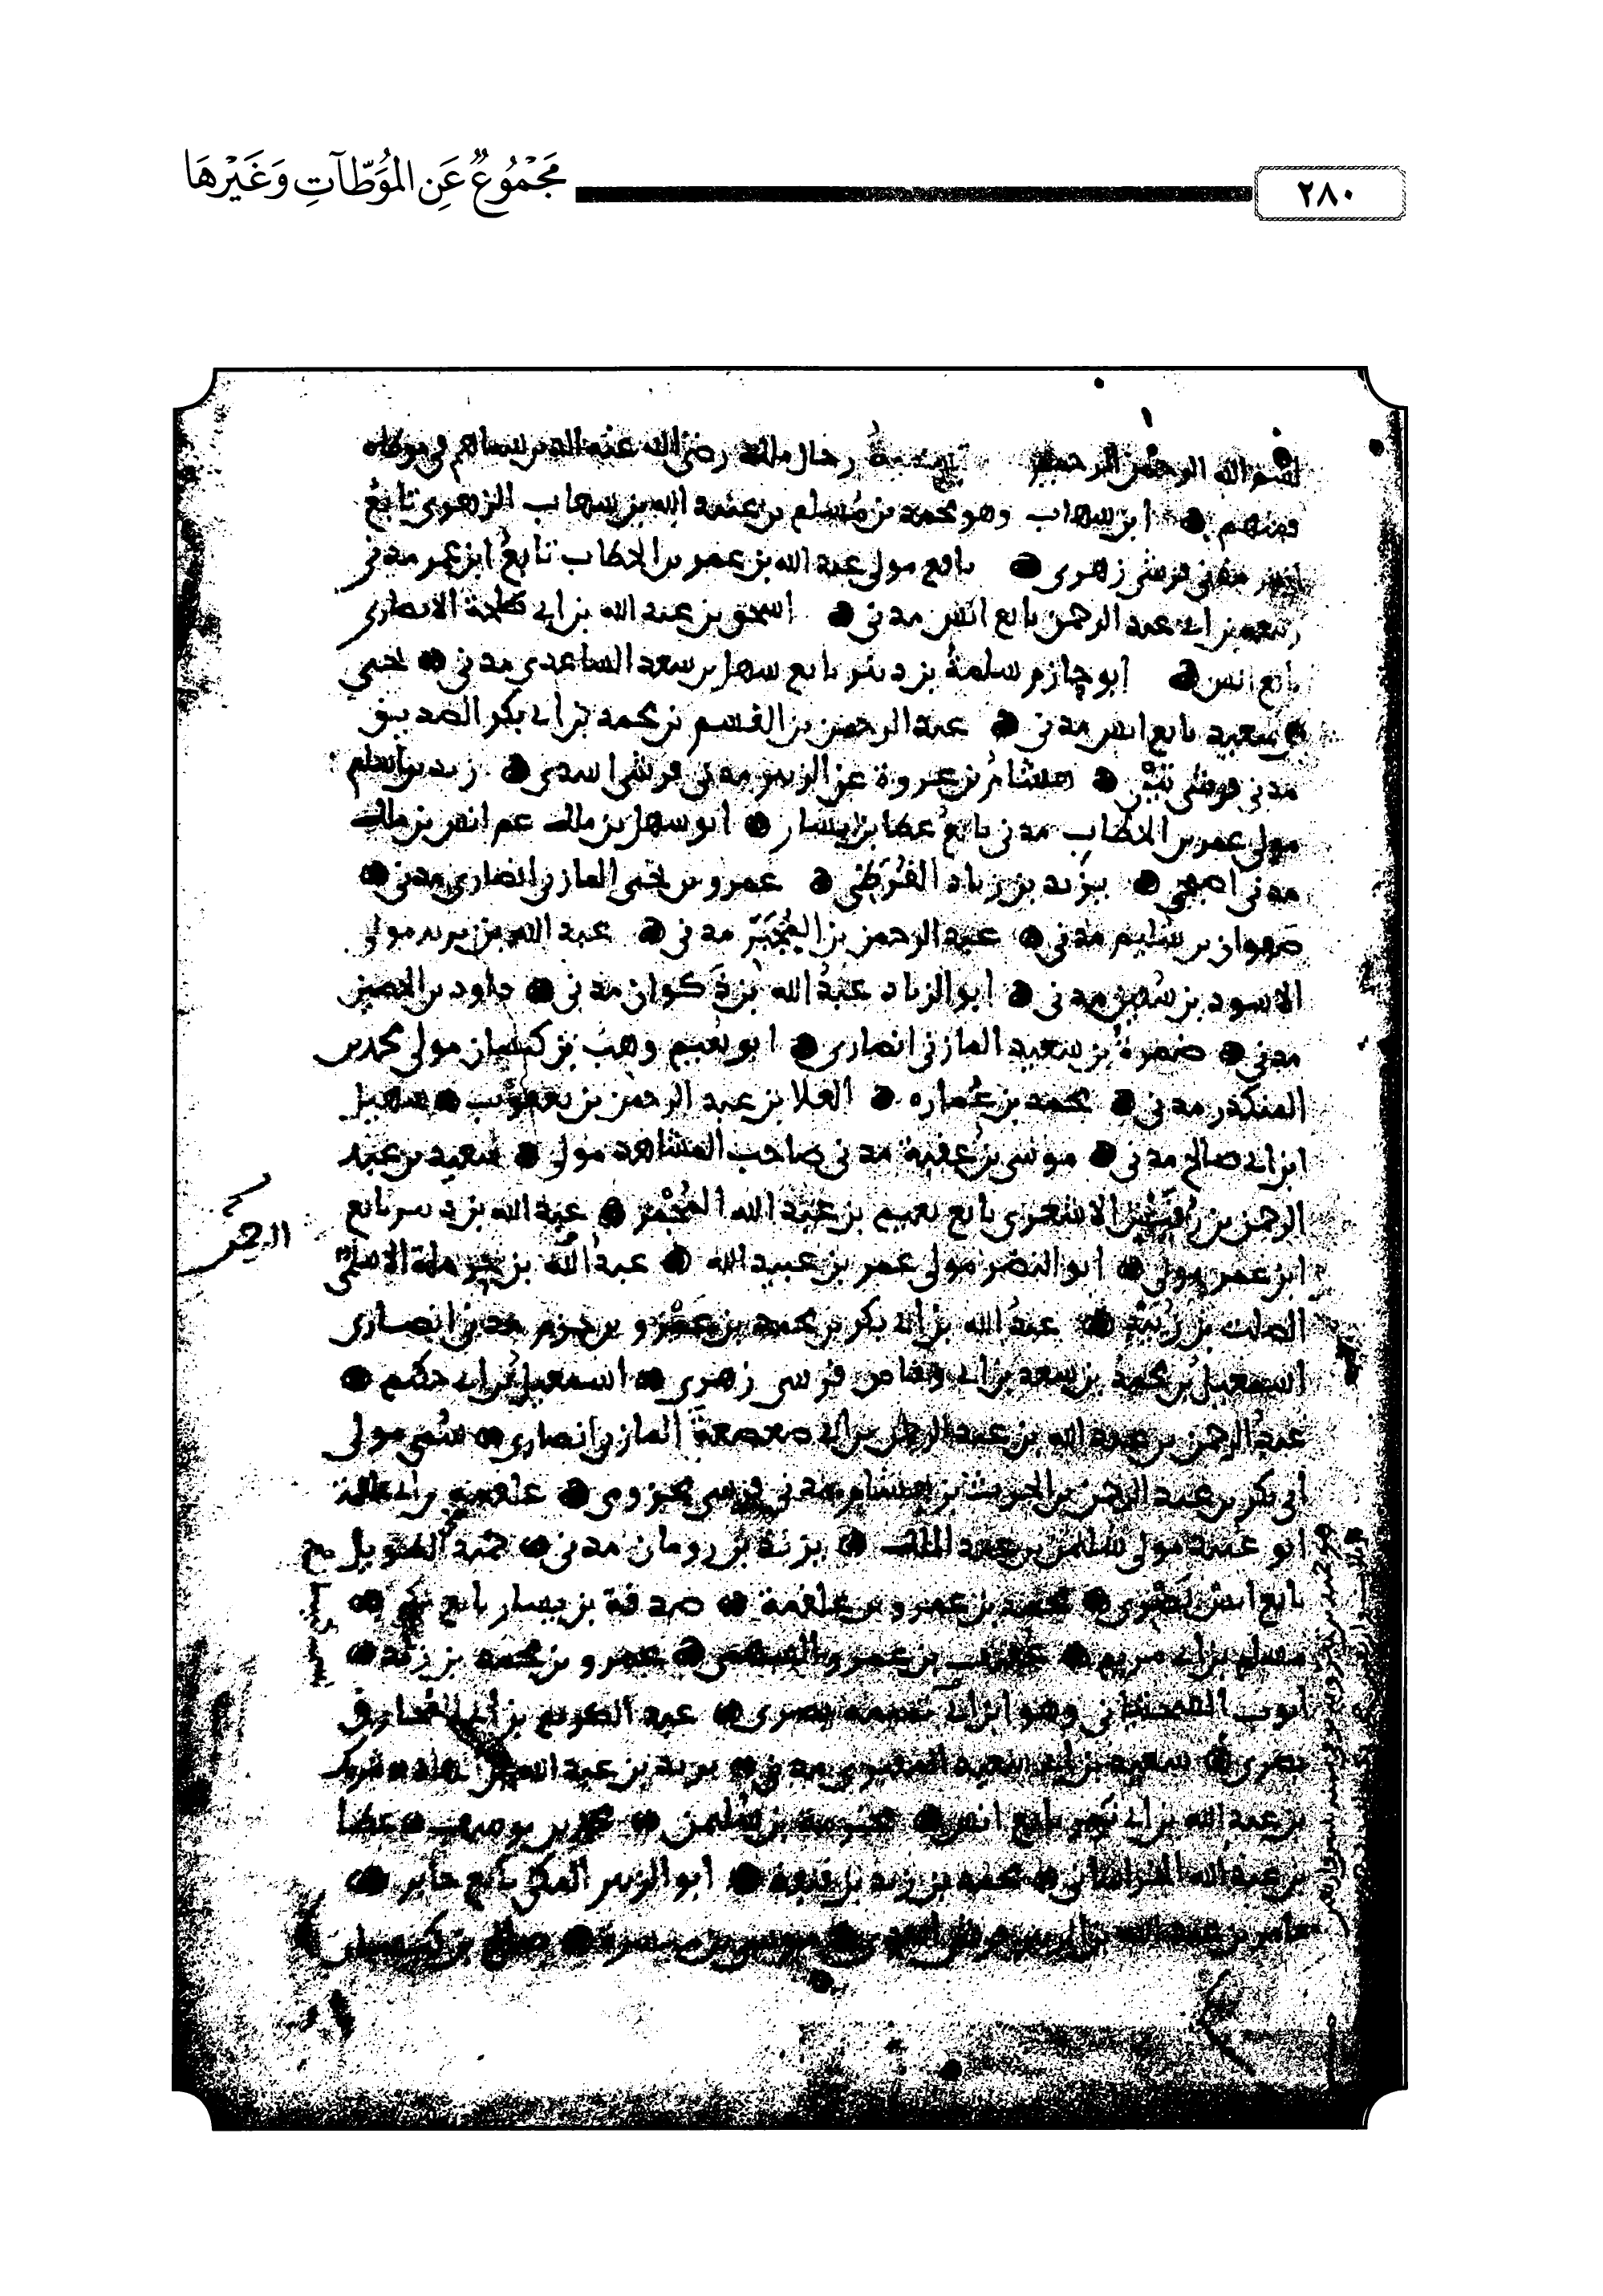 ٢٨٠
مَجْمُوعٌ عَنِ المُوَطّآتِ وَغَيْرِهَا
بسم الله الرحمن الرحيم تسمية رجال ملك رضي الله عنه الذين سماهم في موطاه
فمنهم ابن شهاب وهو محمد بن مسلم بن عبيد الله بن شهاب الزهري تابع
انس مدني قرشي زهري نافع مولى عبد الله بن عمر بن الخطاب تابع ابن عمر مدني
ربيعة بن ابي عبد الرحمن تابع انس مدني اسحق بن عبد الله بن ابي طلحة الانصاري
تابع انس ابو حازم سلمة بن دينر تابع سهل بن سعد الساعدي مدني يحيى
بن سعيد تابع انس مدني عبد الرحمن بن القسم بن محمد بن ابي بكر الصديق
مدني قرشي تيمي هشام بن عروة بن الزبير مدني قرشي اسدي زيد بن اسلم
مولى عمر بن الخطاب مدني تابع عطا بن يسار ابو سهل بن ملك عم انس بن ملك
مدني اصبحي يزيد بن زياد القرظي عمرو بن يحيى المازني انصاري مدني
صفوان بن سليم مدني عبد الرحمن بن المجبر مدني عبد الله بن يزيد مولى
الاسود بن سفين مدني ابو الزناد عبد الله بن ذكوان مدني داود بن الحصين
مدني ضمرة بن سعيد المازني انصاري ابو نعيم وهب بن كيسان مولى محمد بن
المنكدر مدني محمد بن عماره العلا بن عبد الرحمن بن يعقوب سهيل
ابن ابي صالح مدني موسى بن عقبة مدني صاحب المشاهد مولى سعيد بن عبد
الرحمن بن رقيش الاشعري تابع نعيم بن عبد الله المجمر عبد الله بن دينر تابع
ابن عمر مولى ابو النضر مولى عمر بن عبيد الله عبد الله بن حرملة الاسلمي
الصلت بن زييد عبد الله بن ابي بكر بن محمد بن عمرو بن حزم مدني انصاري
اسمعيل بن محمد بن سعد بن ابي وقاص قرشي زهري اسمعيل بن ابي حكيم
عبد الرحمن بن عبد الله بن عبد الرحمن بن ابي صعصعة المازني انصاري سمي مولى
ابي بكر بن عبد الرحمن بن الحرث بن هشام مدني قرشي مخزومي علقمة بن ابي علقمة
ابو عبيد مولى سليمن بن عبد الملك يزيد بن رومان مدني حميد الطويل
تابع انس بصري محمد بن عمرو بن علقمة صدقة بن يسار تابع مكي
مسلم بن ابي مريم عمرو بن محمد بن زيد
ايوب السختياني وهو ابن ابي تميمة بصري عبد الكريم بن ابي المخارق
بصري سعيد بن ابي سعيد المقبري مدني يزيد بن عبد الله بن الهاد شريك
بن عبد الله بن ابي نمر تابع انس مخرمة بن سليمن محمد بن يوسف عطا
بن عبد الله الخراساني محمد بن زيد بن قنفذ ابو الزبير المكي تابع جابر
عامر بن عبد الله بن الزبير موسى بن ميسرة صالح بن كيسان